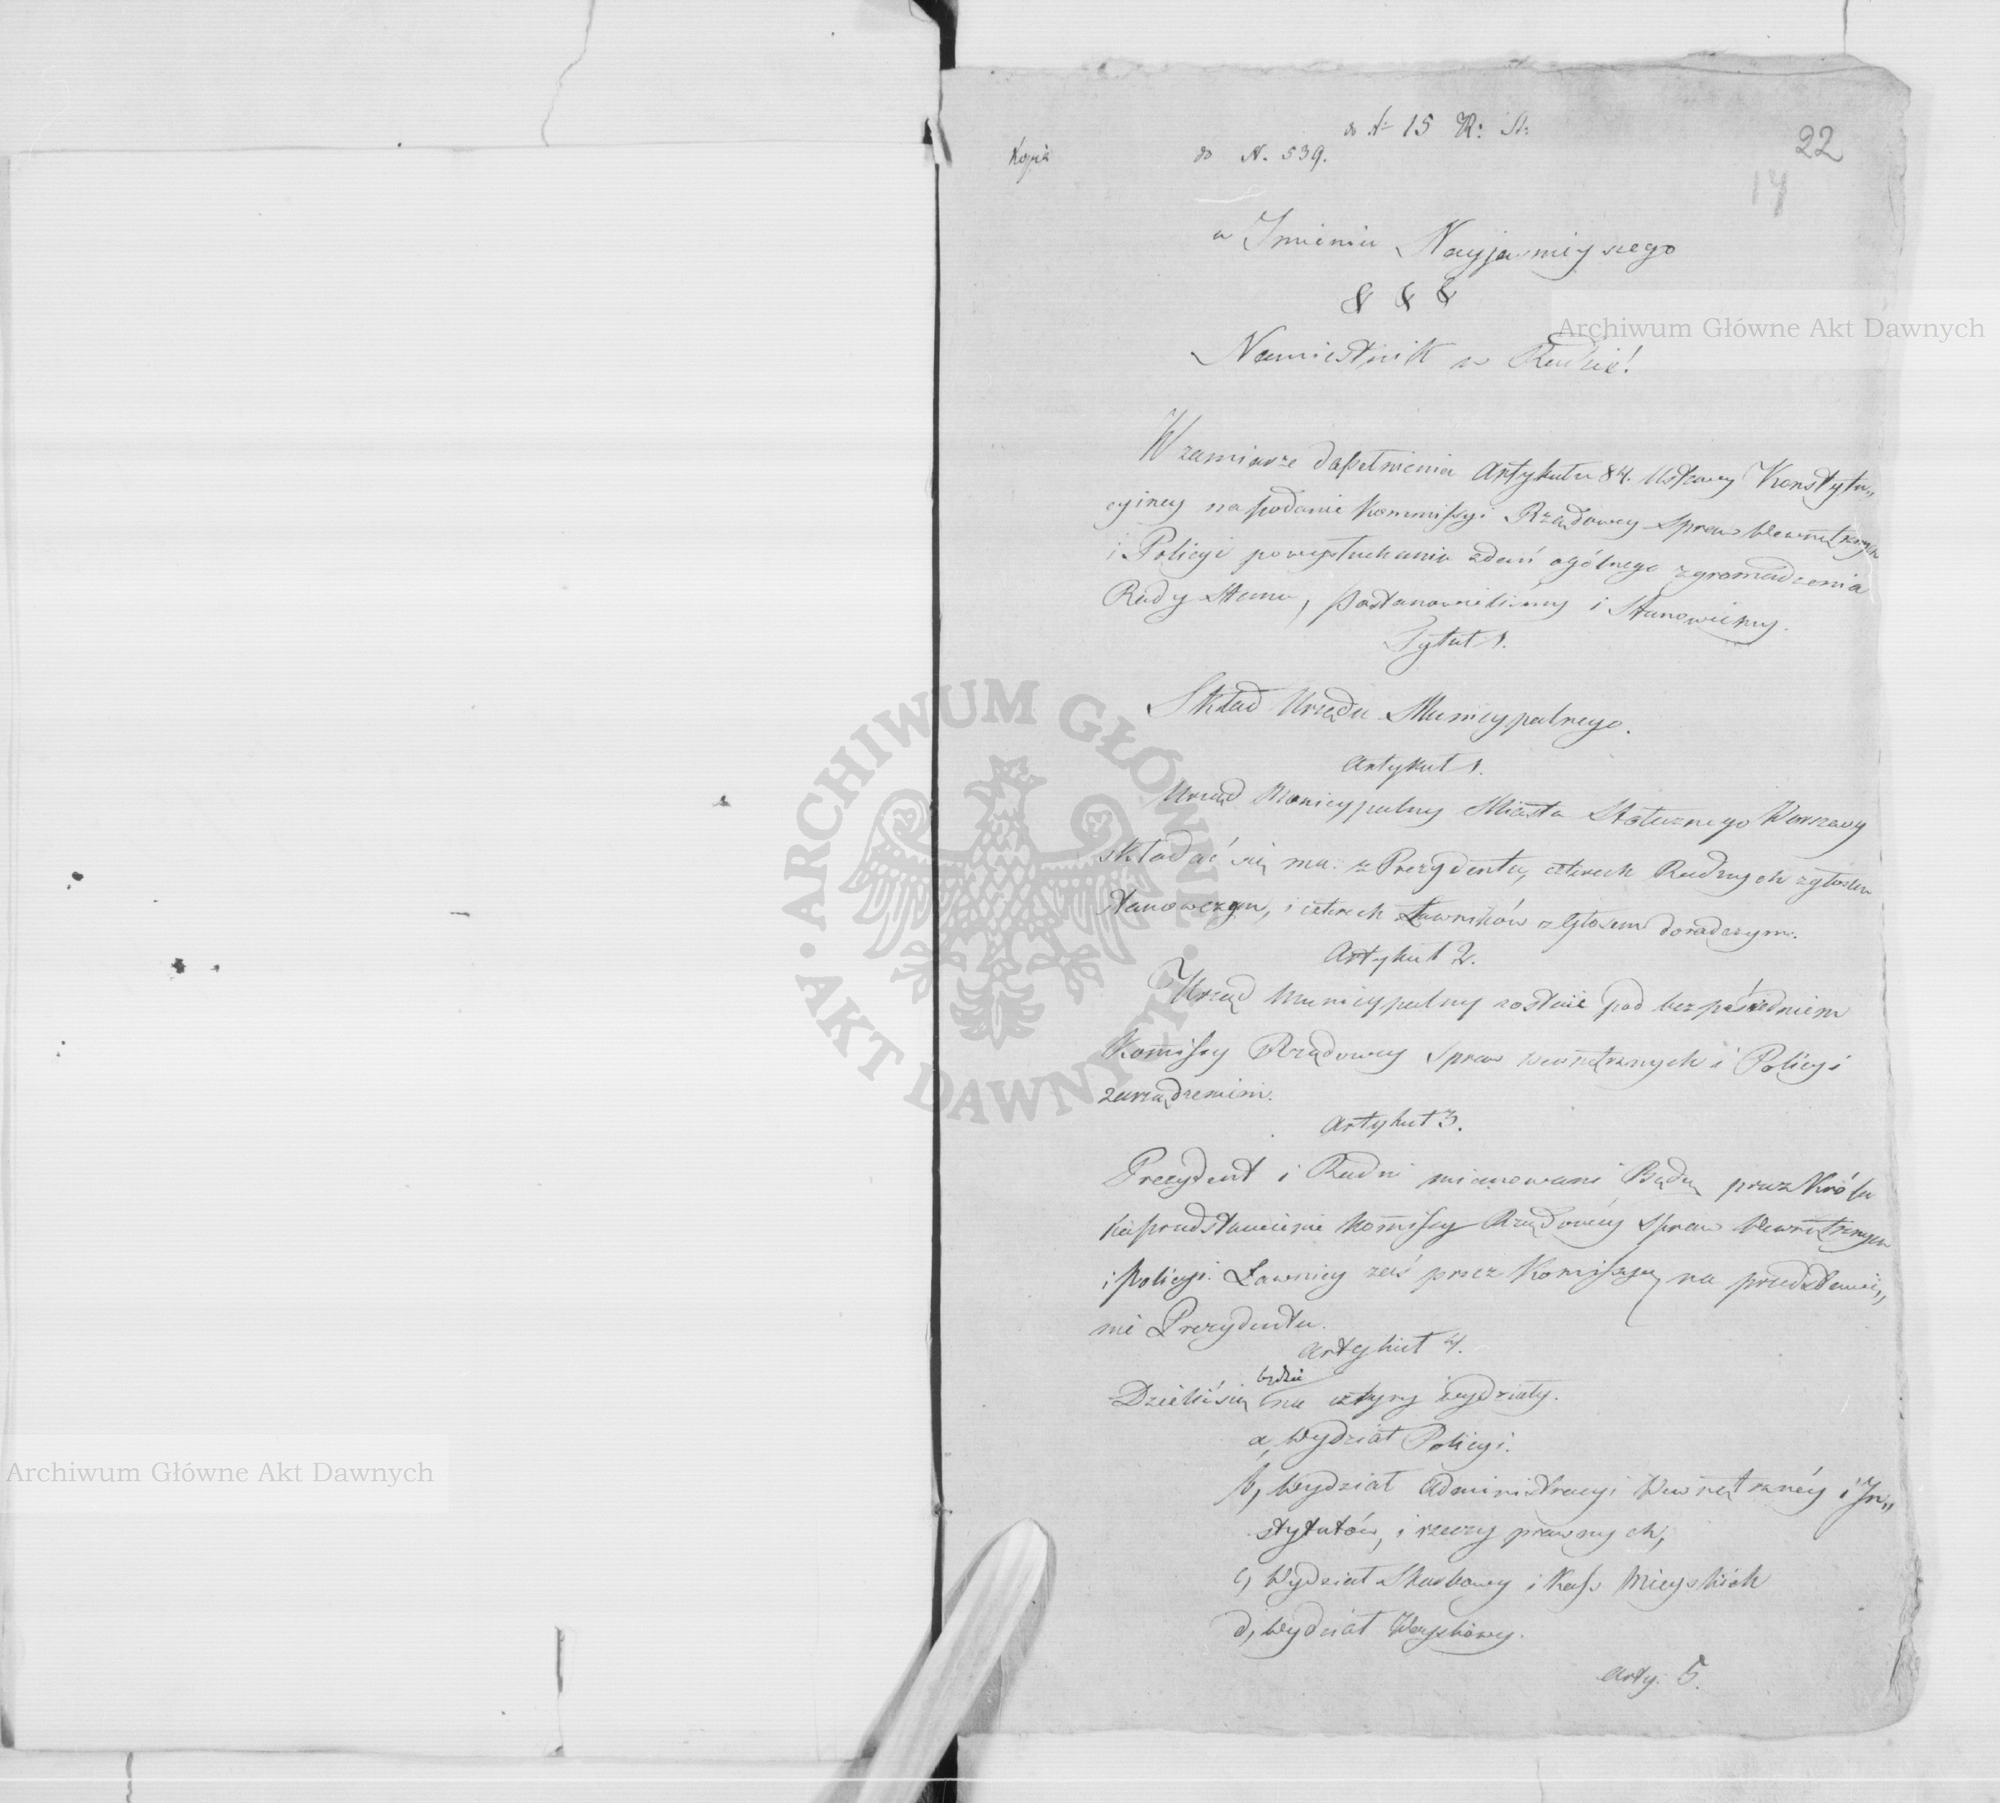 do N. 15 R: St:
22
Kopia
do N. 539.
17
w Imieniu Nayjasnieyszego
& & &
Namiestnik w Radzie!
W zamiarze dopełnienia Artykułu 84. Ustawy Konstytu„
cyiney na podanie Kommissyi Rządowey Spraw Wewnętrznych
i Policyi powysłuchaniu zdań ogólnego zgromadzenia
Rady Stanu, postanowiliśmy i Stanowiemy.
Tytuł 1.
Skład Urzędu Municypalnego.
Artykuł 1.
Urząd Municypalny Miasta Stołecznego Warszawy
składać się ma. z Prezydenta, czterech Radnych z głosem
stanowczym, i czterech Ławników z Głosem doradczym.
Artykuł 2.
Urząd Municypalny zostaie pod bezpośredniem
Komissyi Rządowey Spraw wewnętrznych i Policyi
zarządzeniem.
Artykuł 3.
Prezydent i Radni mianowani Będą przez Króla
na przedstawienie Komissyi Rządowey Spraw Wewnętrznych
i Policyi. Ławnicy zaś przez Komissyę na przedstawie„
nie Prezydenta.
Artykuł 4.
będzie
Dzielić się na cztery wydziały.
a, Wydział Policyi.
b, Wydział Administracyi Wewnętrznéy i In„
stytutów, i rzeczy prawnych,
c, Wydział Skarbowy i Kass Mieyskich
d, Wydział Woyskowy.
Arty. 5.
Archiwum Główne Akt Dawnych
Archiwum Główne Akt Dawnych
ARCHIWUM GŁÓWNE AKT DAWNYCH